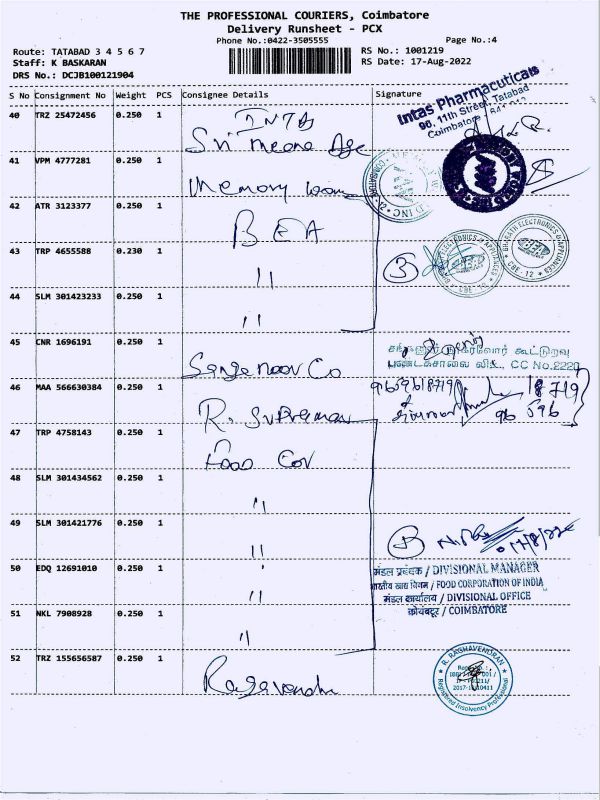 THE PROFESSIONAL COURIERS, Coimbatore
Delivery Runsheet - PCX
Phone No.:0422-3505555
Page No.:4
Route: TATABAD 3 4 5 6 7
RS No.: 1001219
Staff: K BASKARAN
RS Date: 17-Aug-2022
DRS No.: DCJB100121904
S No Consignment No Weight PCS Consignee Details Signature
40 TRZ 25472456 0.250 1
Intas Pharmaceuticals
96, 11th Street, Tatabad
Coimbatore
41 VPM 4777281 0.250 1 Memory
42 ATR 3123377 0.250 1
43 TRP 4655588 0.230 1 "
3
BHARATH ELECTRONICS & APPLIANCES
CBE-12
44 SLM 301423233 0.250 1 "
45 CNR 1696191 0.250 1 Co
கூட்டுறவு
பண்டகசாலை லிட்., CC No.2220
46 MAA 566630384 0.250 1 R.
18719
47 TRP 4758143 0.250 1 Food
48 SLM 301434562 0.250 1 "
49 SLM 301421776 0.250 1 "
17/8/22
50 EDQ 12691010 0.250 1 "
मंडल प्रबंधक / DIVISIONAL MANAGER
भारतीय खाद्य निगम / FOOD CORPORATION OF INDIA
मंडल कार्यालय / DIVISIONAL OFFICE
कोयंबटूर / COIMBATORE
51 NKL 7908928 0.250 1 "
52 TRZ 155656587 0.250 1
R. RAGHAVENDRAN
Registered Insolvency Professional